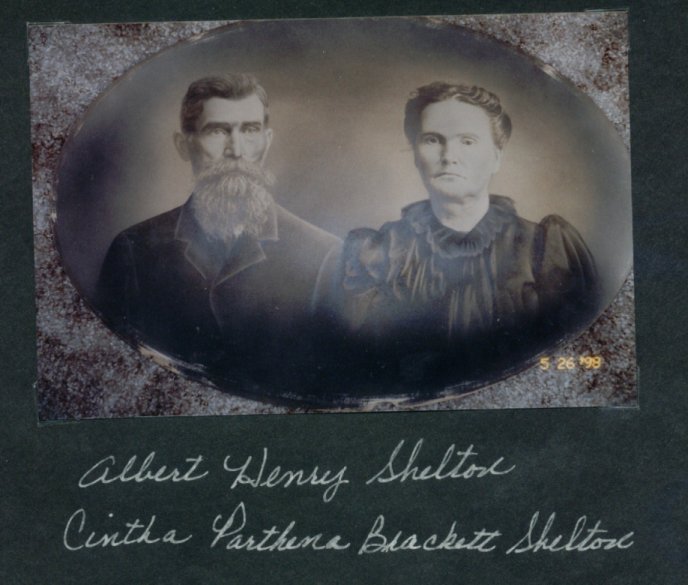 5 26 '98
Albert Henry Shelton
Cintha Parthena Brackett Shelton